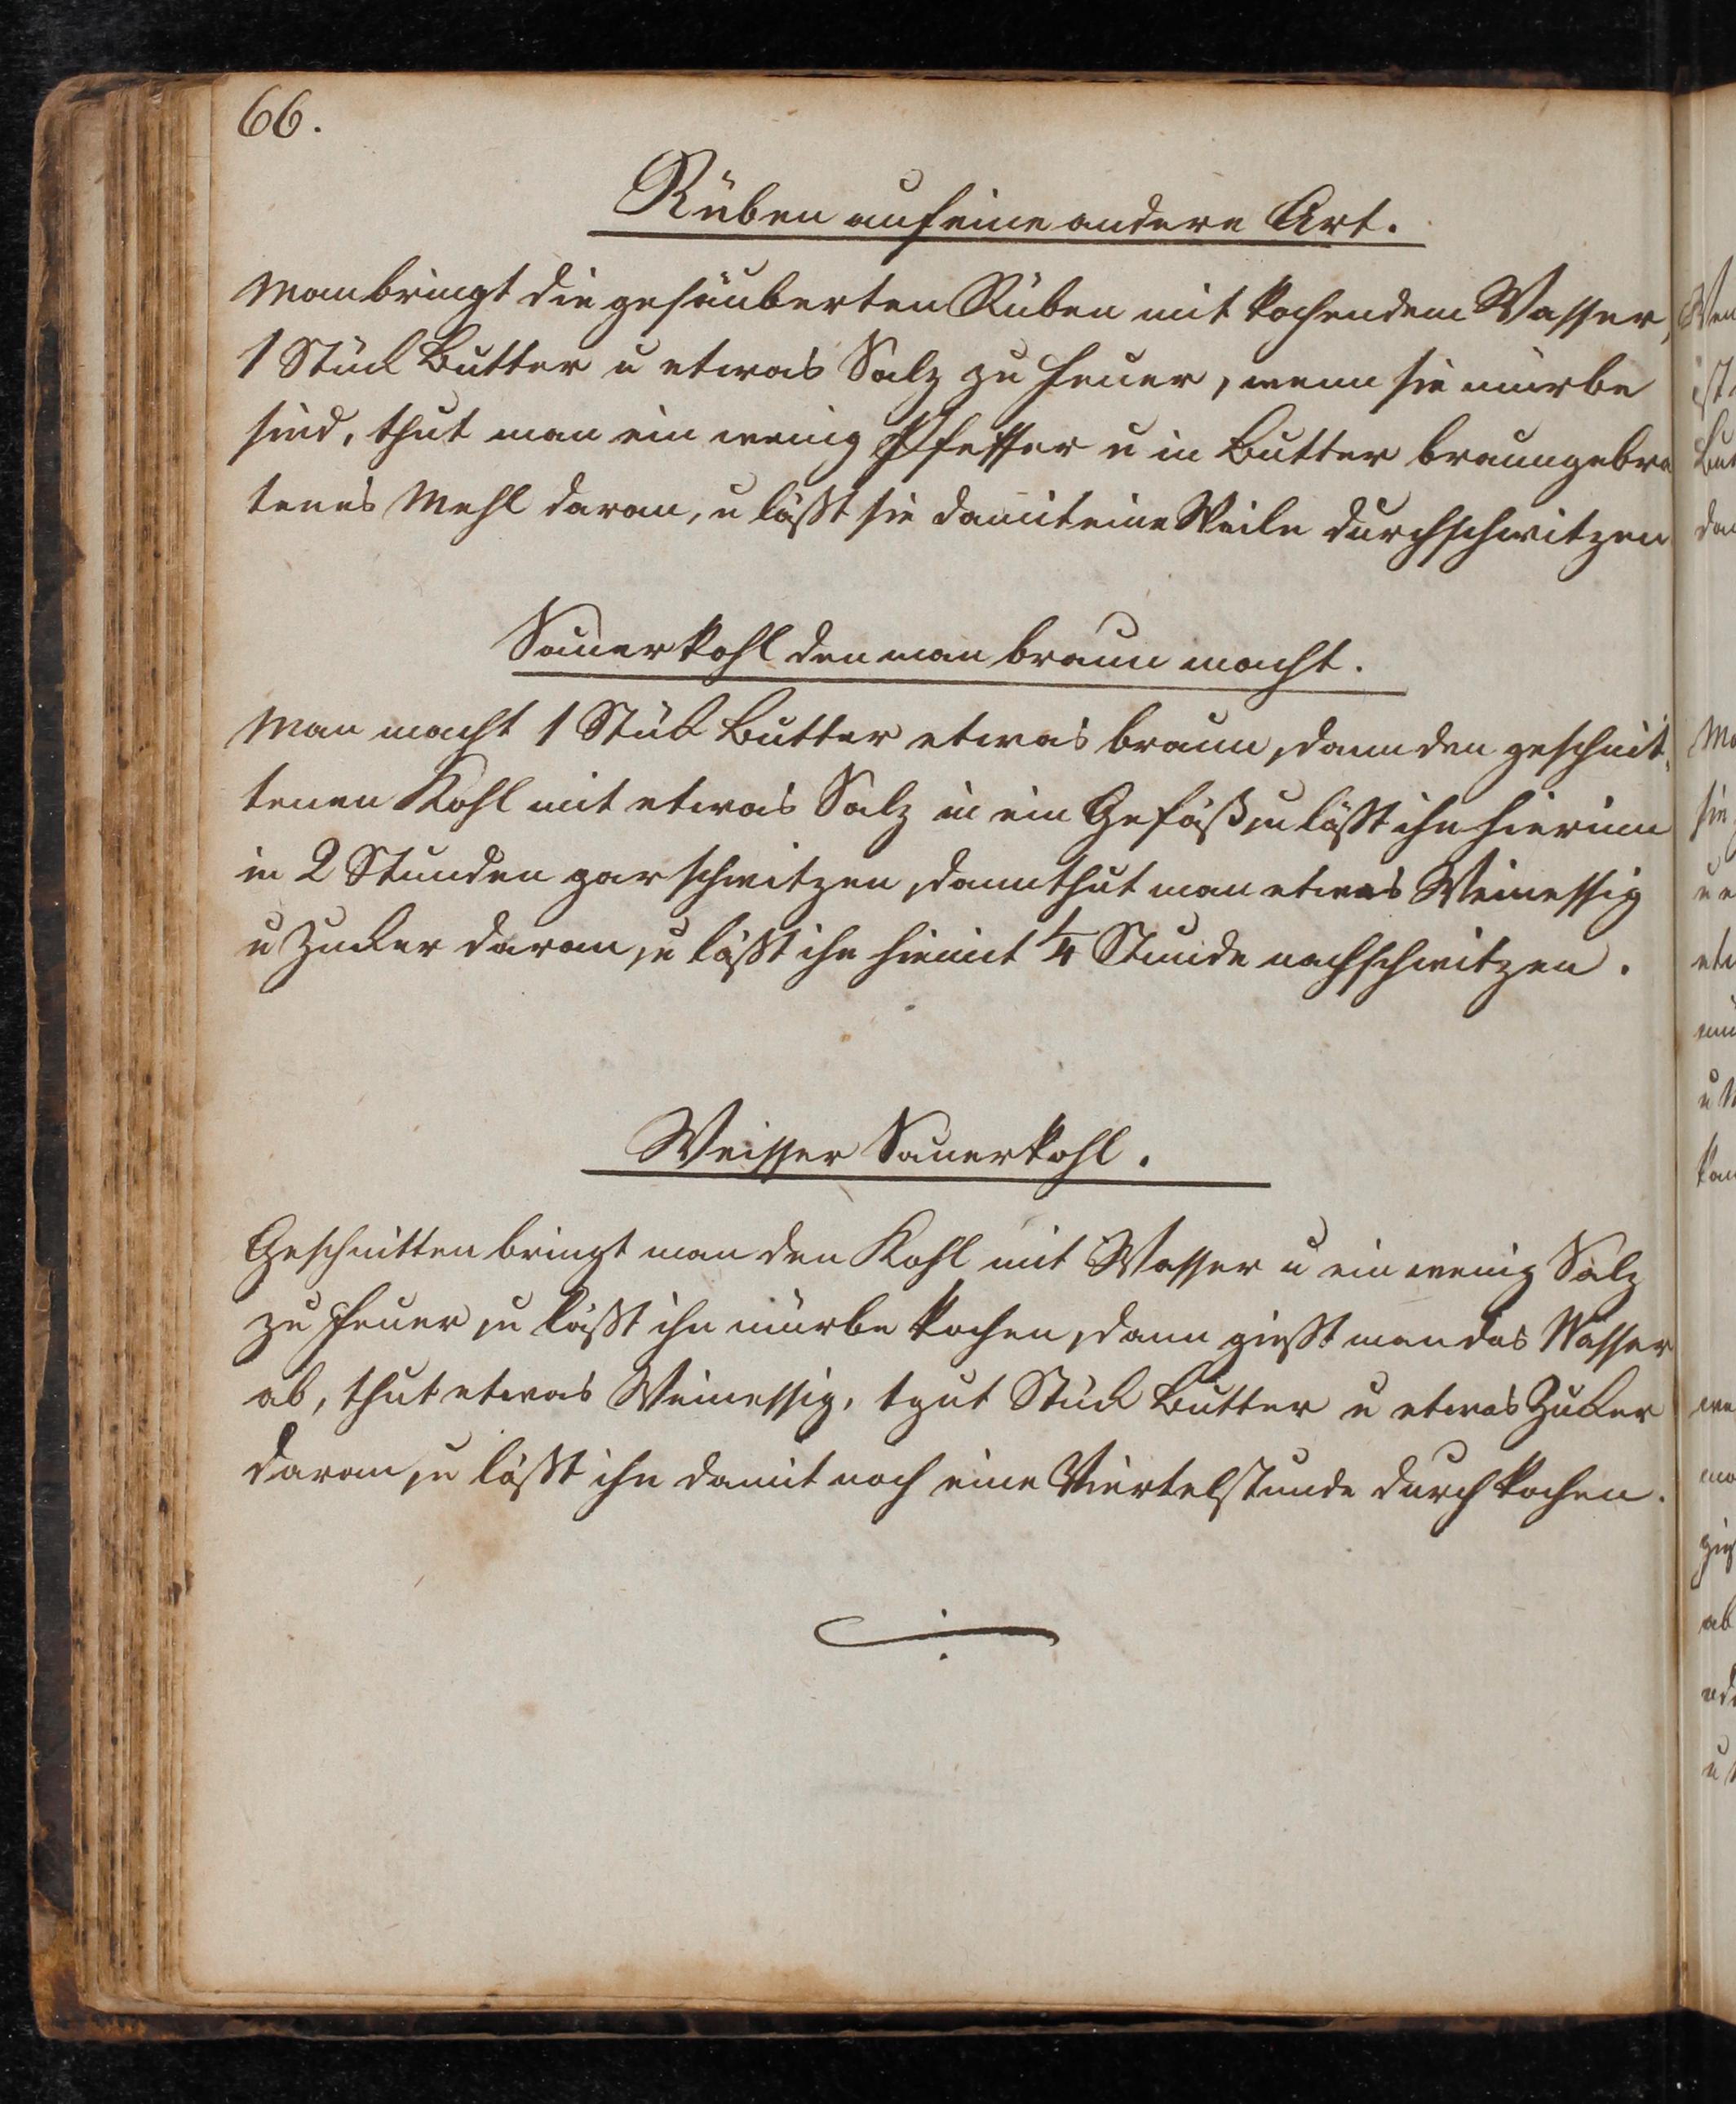 66.
Rüben auf eine andere Art.
Man bringt die gesäuberten Rüben mit kochendem Wasser,
1 Stück Butter u etwas Salz zu Feuer, wenn sie mürbe
sind, thut man ein wenig Pfeffer u in Butter braungebra
tenes Mehl daran, u läßt sie damit eine Weile durchschwitzen
Sauerkohl den man braun macht.
Man macht 1 Stück Butter etwas braun, dann den geschnit,
tenen Kohl mit etwas Salz in ein Gefäß, u läßt ihn hierinn
in 2 Stunden gar schwitzen, dann thut man etwas Weinessig
u Zucker daran, u läßt ihn hiemit 1/4 Stunde nachschwitzen.
Weisser Sauerkohl.
Geschnitten bringt man den Kohl mit Wasser u ein wenig Salz
zu Feuer, u läßt ihn mürbe kochen, dann gießt man das Wasser
ab, thut etwas Weinessig, 1 gut Stück Butter u etwas Zucker
daran, u läßt ihn damit noch eine Viertelstunde durchkochen.